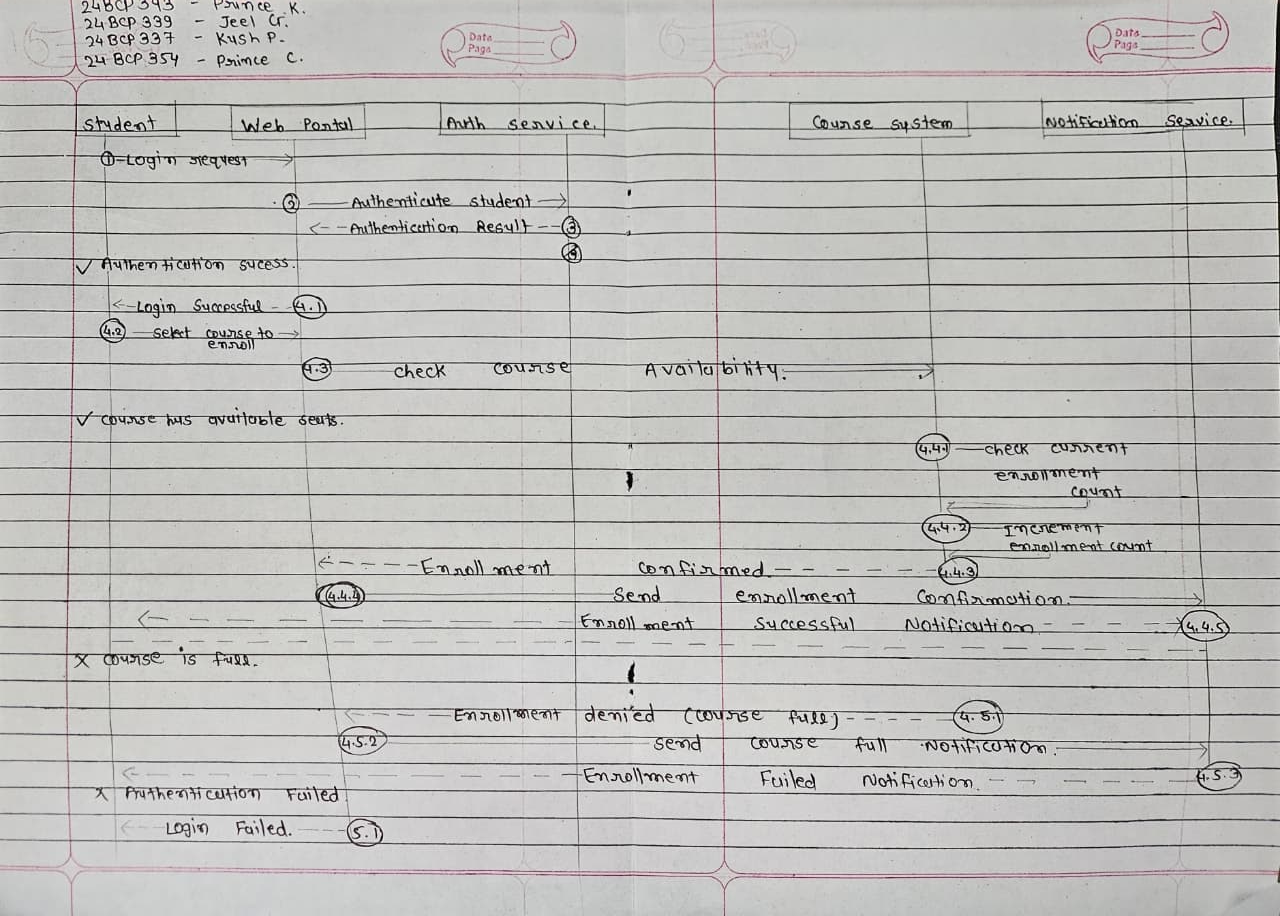 24BCP343 - Prince K.
24BCP339 - Jeel G.
24BCP337 - Kush P.
24BCP354 - Prince C.
Date
Page
Date
Page
Student Web Portal Auth service. Course system Notification Service.
① Login request
② Authenticate student
Authentication Result ③
✓ Authentication sucess.
Login Successful 4.1
4.2 select course to
enroll
4.3 check course Availability.
✓ course has available seats.
4.4.1 check current
enrollment
count
4.4.2 Increment
enrollment count
Enrollment confirmed 4.4.3
4.4.4 Send enrollment Confirmation.
Enrollment Successful Notification 4.4.5
X course is full.
Enrollment denied (course full) 4.5.1
4.5.2 send course full Notification.
Enrollment Failed Notification. 4.5.3
X Authentication Failed
Login Failed. 5.1